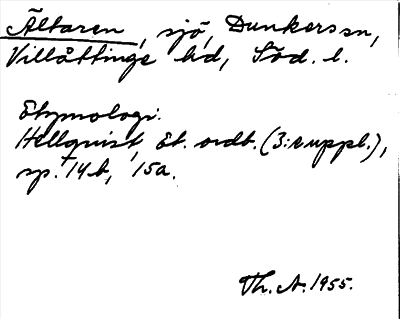 Ältaren, sjö, Dunkers sn,
Villåttinge hd, Söd. l.
Etymologi.
Hellquist, Et. ordb. (3:e uppl.),
sp. 14b, 15a.
Th. A. 1955.